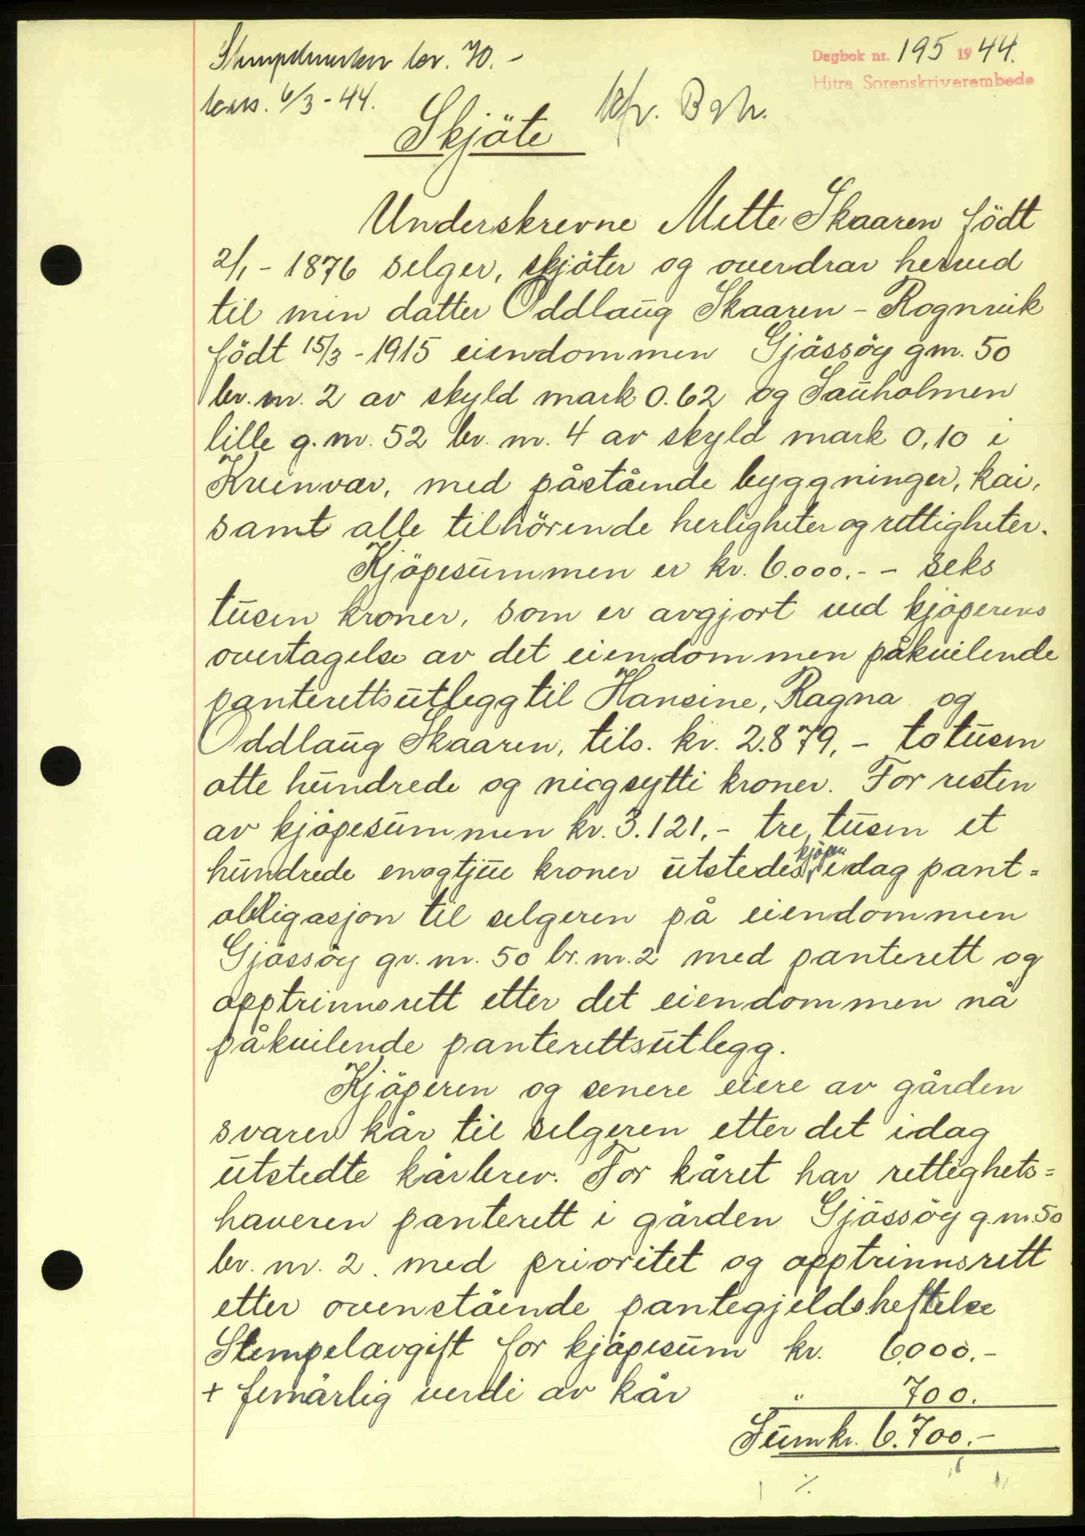 Stempelmerker kr. 70.-
kass. 6/3-44.
Dagbok nr. 195 1944.
Hitra Sorenskriverembede
Skjöte
Underskrevne Mette Skaaren födt
2/1 - 1876 selger, skjöter og overdrar herved
til min datter Oddlaug Skaaren - Rognvik
födt 15/3 - 1915 eiendommen Gjässöy g.nr. 50
br. nr. 2 av skyld mark 0.62 og Sauholmen
lille g. nr. 52 br. nr. 4 av skyld mark 0,10 i
Kvenvær, med påstående byggninger, kai,
samt alle tilhörende herligheter og rettigheter.
Kjöpesummen er kr. 6.000.- - seks
tusen kroner, som er avgjort ved kjöperens
overtagelse av det eiendommen påkvilende
panterettsutlegg til Hansine, Ragna og
Oddlaug Skaaren, tils. kr. 2.879,- to tusen
åtte hundrede og niogsytti kroner. For resten
av kjöpesummen kr. 3.121,- tre tusen et
hundrede enogtjue kroner utstedes kjöper idag pant=
obligasjon til selgeren på eiendommen
Gjässöy gr. nr. 50 br. nr. 2 med panterett og
opptrinnsrett etter det eiendommen nå
påkvilende panterettsutlegg.
Kjöperen og senere eiere av gården
svarer kår til selgeren etter det idag
utstedte kårbrev. For kåret har rettighets=
haveren panterett i gården Gjässöy g.nr. 50
br. nr. 2. med prioritet og opptrinnsrett
etter ovenstående pantegjeldsheftelse
Stempelavgift for kjöpesum kr. 6000.-
+ femårlig verdi av kår " 700.
Sum kr. 6.700.-